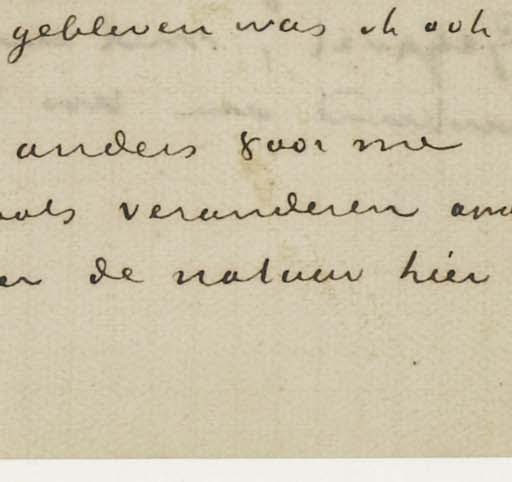 gebleven was ik ook
anders voor me
veranderen
de natuur hier